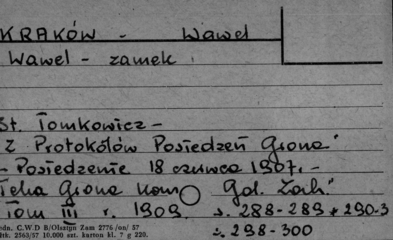 KRAKÓW - Wawel
Wawel - zamek
St. Tomkowicz -
"Z Protokółów Posiedzeń Grona"
- Posiedzenie 18 czerwca 1907. -
Teka Grona Kons. Gal. Zach.
Tom III r. 1909 s. 288-289 * 290-3
s. 298-300
edn. C.W.D B/Olsztyn Zam 2776/nn/57
Mtk. 2563/57 10.000 szt. karton kl. 7 g 220.